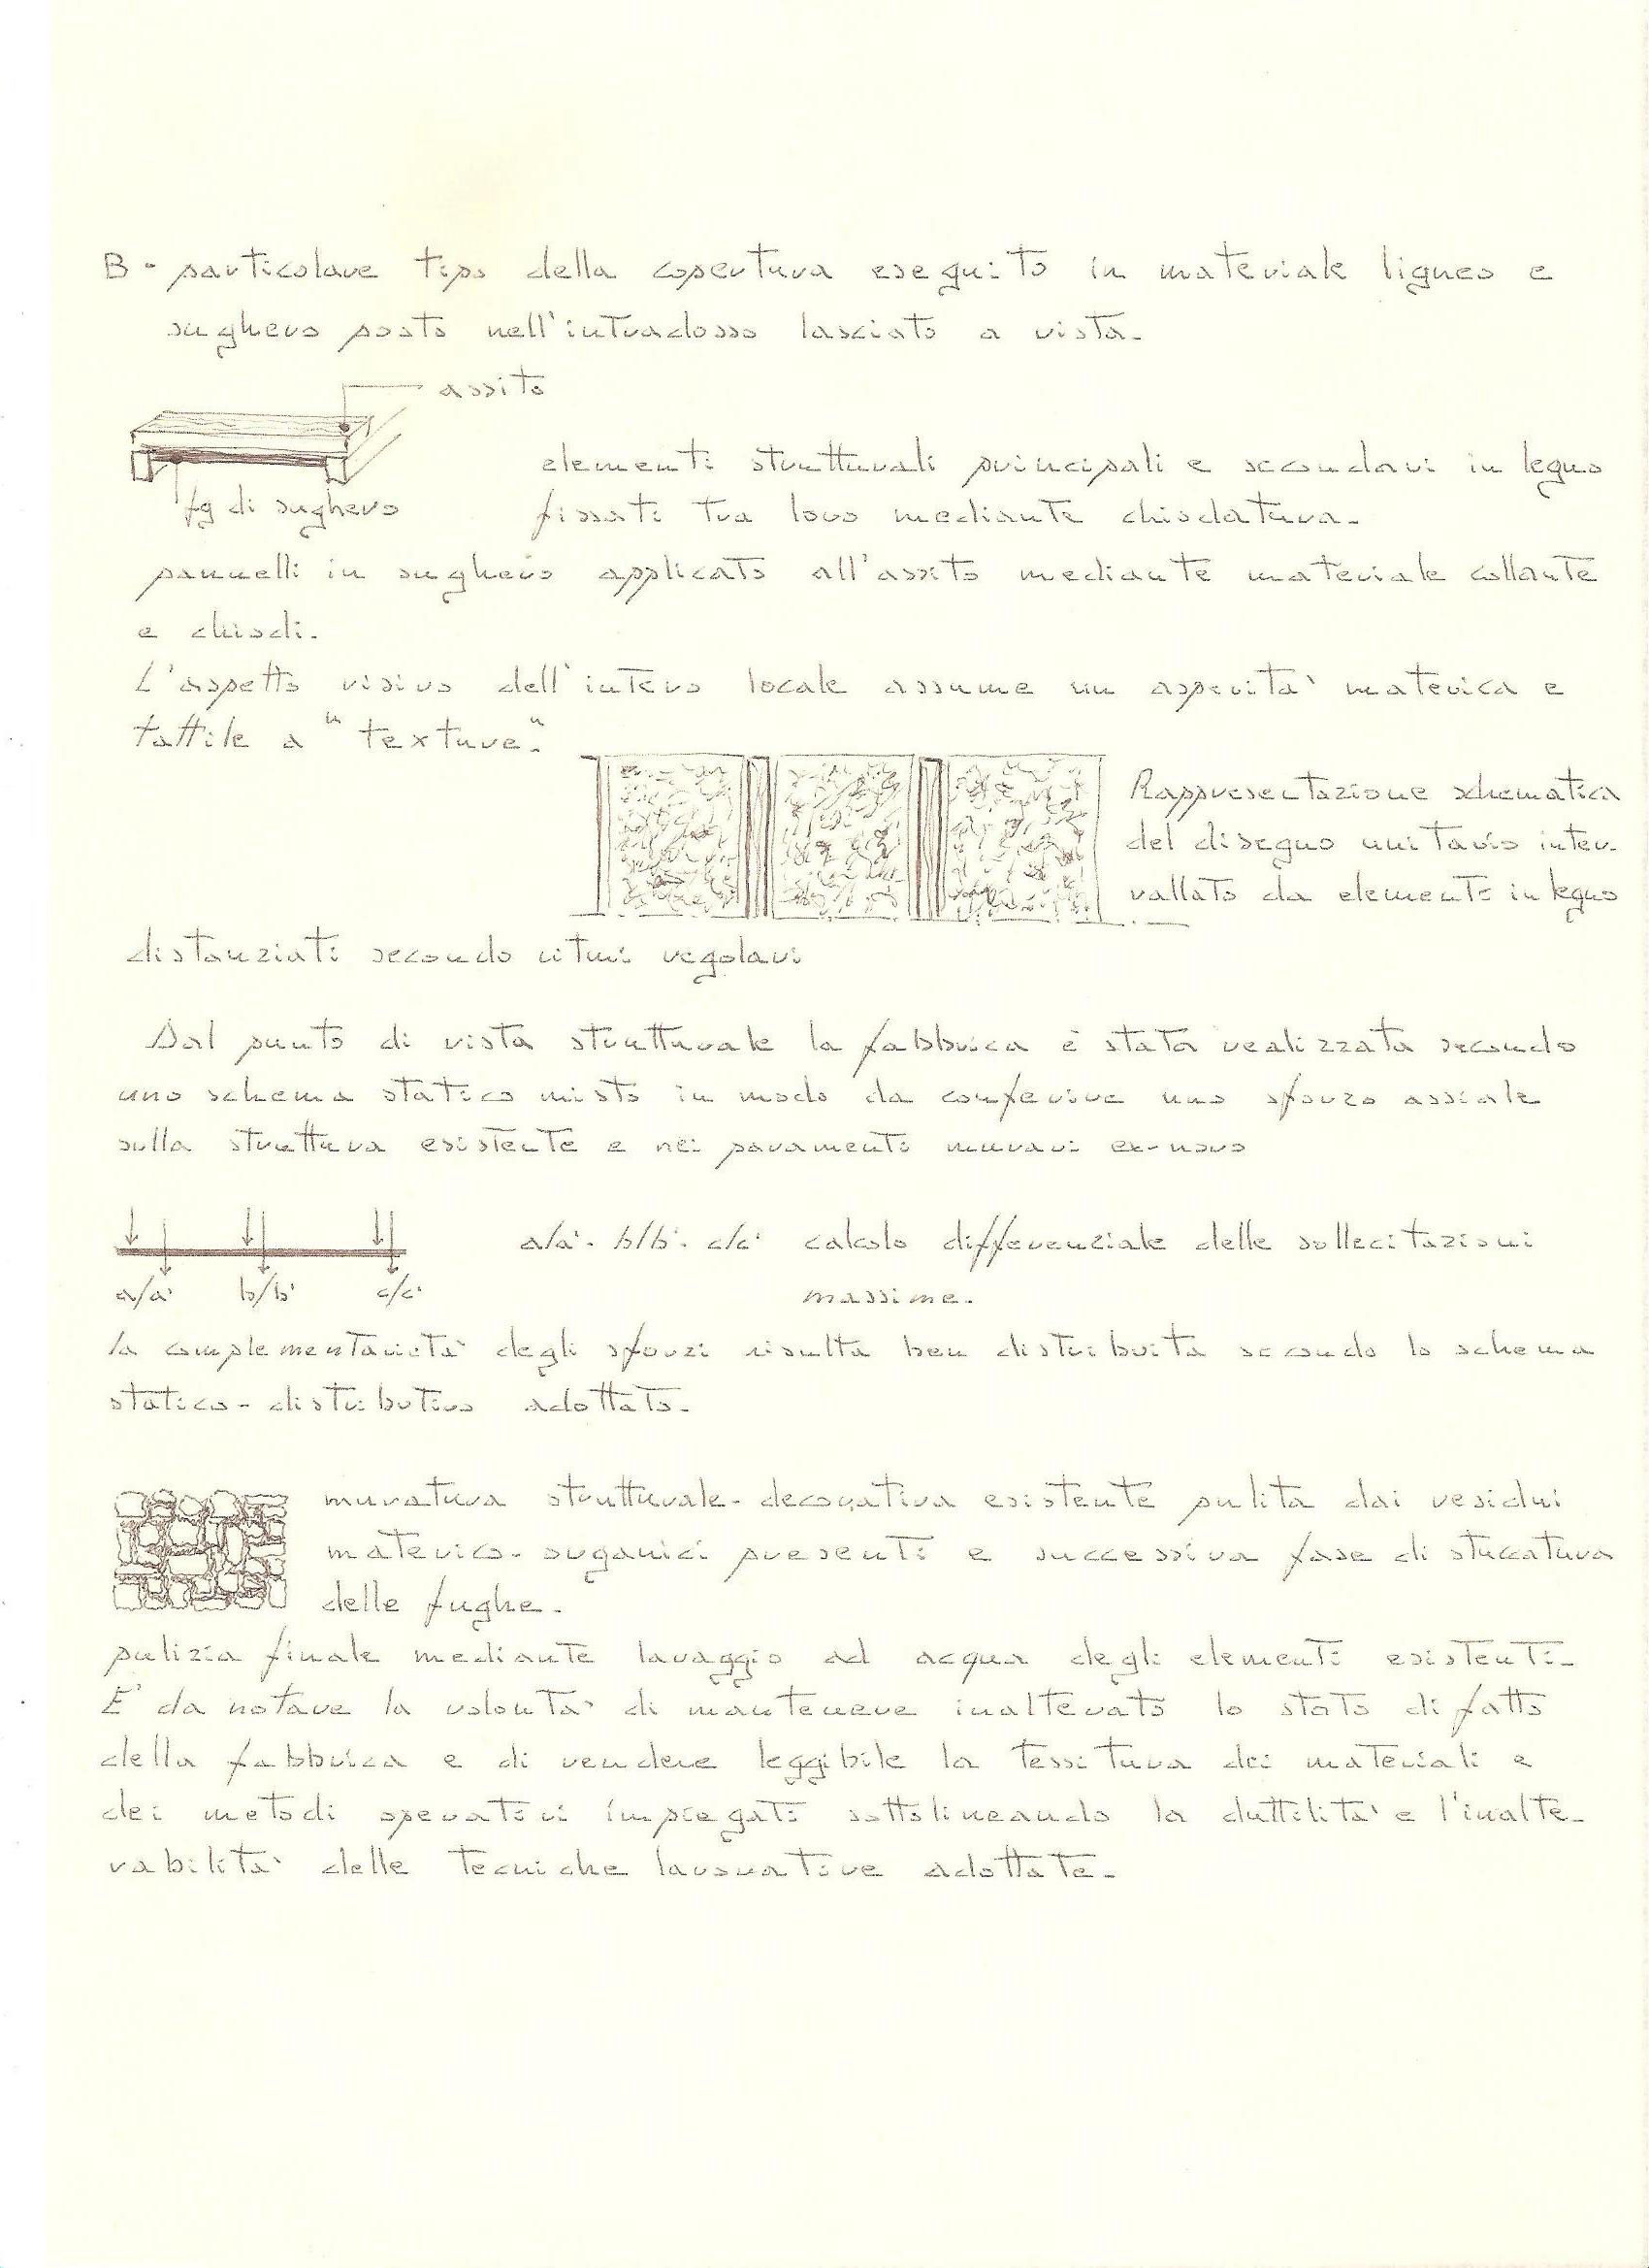 B - particolare tipo della copertura eseguito in materiale ligneo e
sughero posto nell'intradosso lasciato a vista.
assito
elementi strutturali principali e secondari in legno
fg di sughero
fissati tra loro mediante chiodatura.
pannelli in sughero applicato all'assito mediante materiale collante
e chiodi.
L'aspetto visivo dell'intero locale assume un asperità materica e
tattile a "texture".
Rappresentazione schematica
del disegno unitario inter-
vallato da elementi in legno
distanziati secondo ritmi regolari
Dal punto di vista strutturale la fabbrica è stata realizzata secondo
uno schema statico misto in modo da conferire uno sforzo assiale
sulla struttura esistente e nei paramenti murari ex-novo
a/a'. b/b'. c/c' calcolo differenziale delle sollecitazioni
a/a' b/b' c/c'
massime.
la complementarietà degli sforzi risulta ben distribuita secondo lo schema
statico-distributivo adottato.
muratura strutturale-decorativa esistente pulita dai residui
materico-organici presenti e successiva fase di stuccatura
delle fughe.
pulizia finale mediante lavaggio ad acqua degli elementi esistenti.
E' da notare la volontà di mantenere inalterato lo stato di fatto
della fabbrica e di rendere leggibile la tessitura dei materiali e
dei metodi operativi impiegati sottolineando la duttilità e l'inalte-
rabilità delle tecniche lavorative adottate.